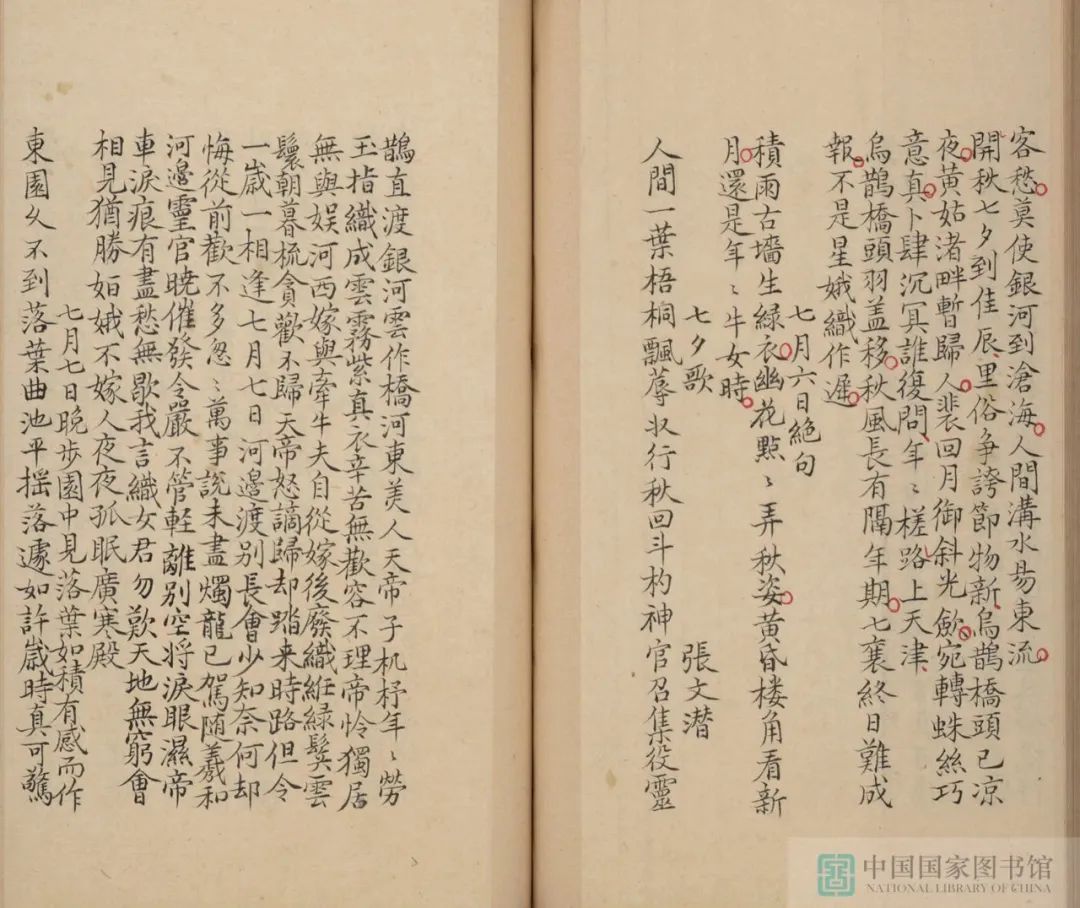 客愁莫使銀河到滄海人間溝水易東流
開秋七夕到佳辰里俗爭誇節物新烏鵲橋頭已凉
夜黃姑渚畔暫歸人裴回月御斜光歛宛轉蛛絲巧
意真卜肆沉冥誰復問年〻槎路上天津
烏鵲橋頭羽盖移秋風長有隔年期七襄終日難成
報不是星娥織作遲
七月六日絕句
積雨古墻生綠衣幽花點〻弄秋姿黃昏楼角看新
月還是年〻牛女時
七夕歌
張文潜
人間一葉梧桐飄蓐收行秋回斗杓神官召集役靈
鵲直渡銀河雲作橋河東美人天帝子机杼年〻勞
玉指織成雲霧紫真衣辛苦無歡容不理帝怜獨居
無與娱河西嫁與牽牛夫自從嫁後廢織絍緑鬓雲
鬟朝暮梳貪歡不歸天帝怒謫歸却踏来時路但令
一歲一相逢七月七日河邊渡别長會少知奈何却
悔從前歡不多忽〻萬事說未盡燭龍已駕随羲和
河邊靈官曉催發令嚴不管輕離别空将淚眼濕帝
車淚痕有盡愁無歇我言織女君勿歎天地無窮會
相見猶勝姮娥不嫁人夜夜孤眠廣寒殿
七月七日晚步園中見落葉如積有感而作
東園久不到落葉曲池平揺落遽如許歲時真可驚
中国国家图书馆
NATIONAL LIBRARY OF CHINA